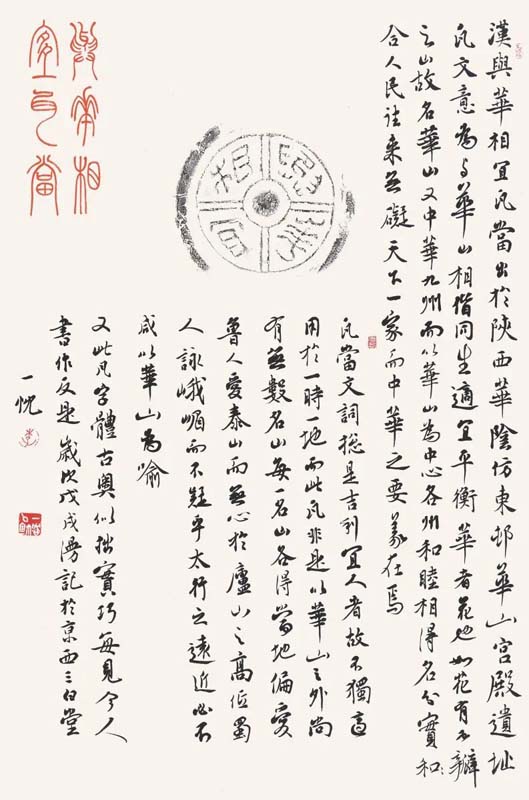 與華相
宜瓦當
與華相宜
漢與華相宜瓦當出於陝西華陰仿東邨華山宮殿遺址
瓦文意為與華山相偕同生適宜平衡華者花也如花有五瓣
之山故名華山又中華九州而以華山為中心各州和睦相得名分實和
合人民往來無礙天下一家而中華之要義在焉
瓦當文詞總是吉利宜人者故不獨
用於一時一地而此瓦非是以華山之外尚
有無數名山每一名山各得當地偏愛
魯人愛泰山而無心於廬山之高位蜀
人詠峨嵋而不疑乎太行之遠近必不
咸以華山為喻
又此瓦字體古奧似拙實巧每見今人
書作反是歲次戊戌漫記於京西三伯堂
一忱